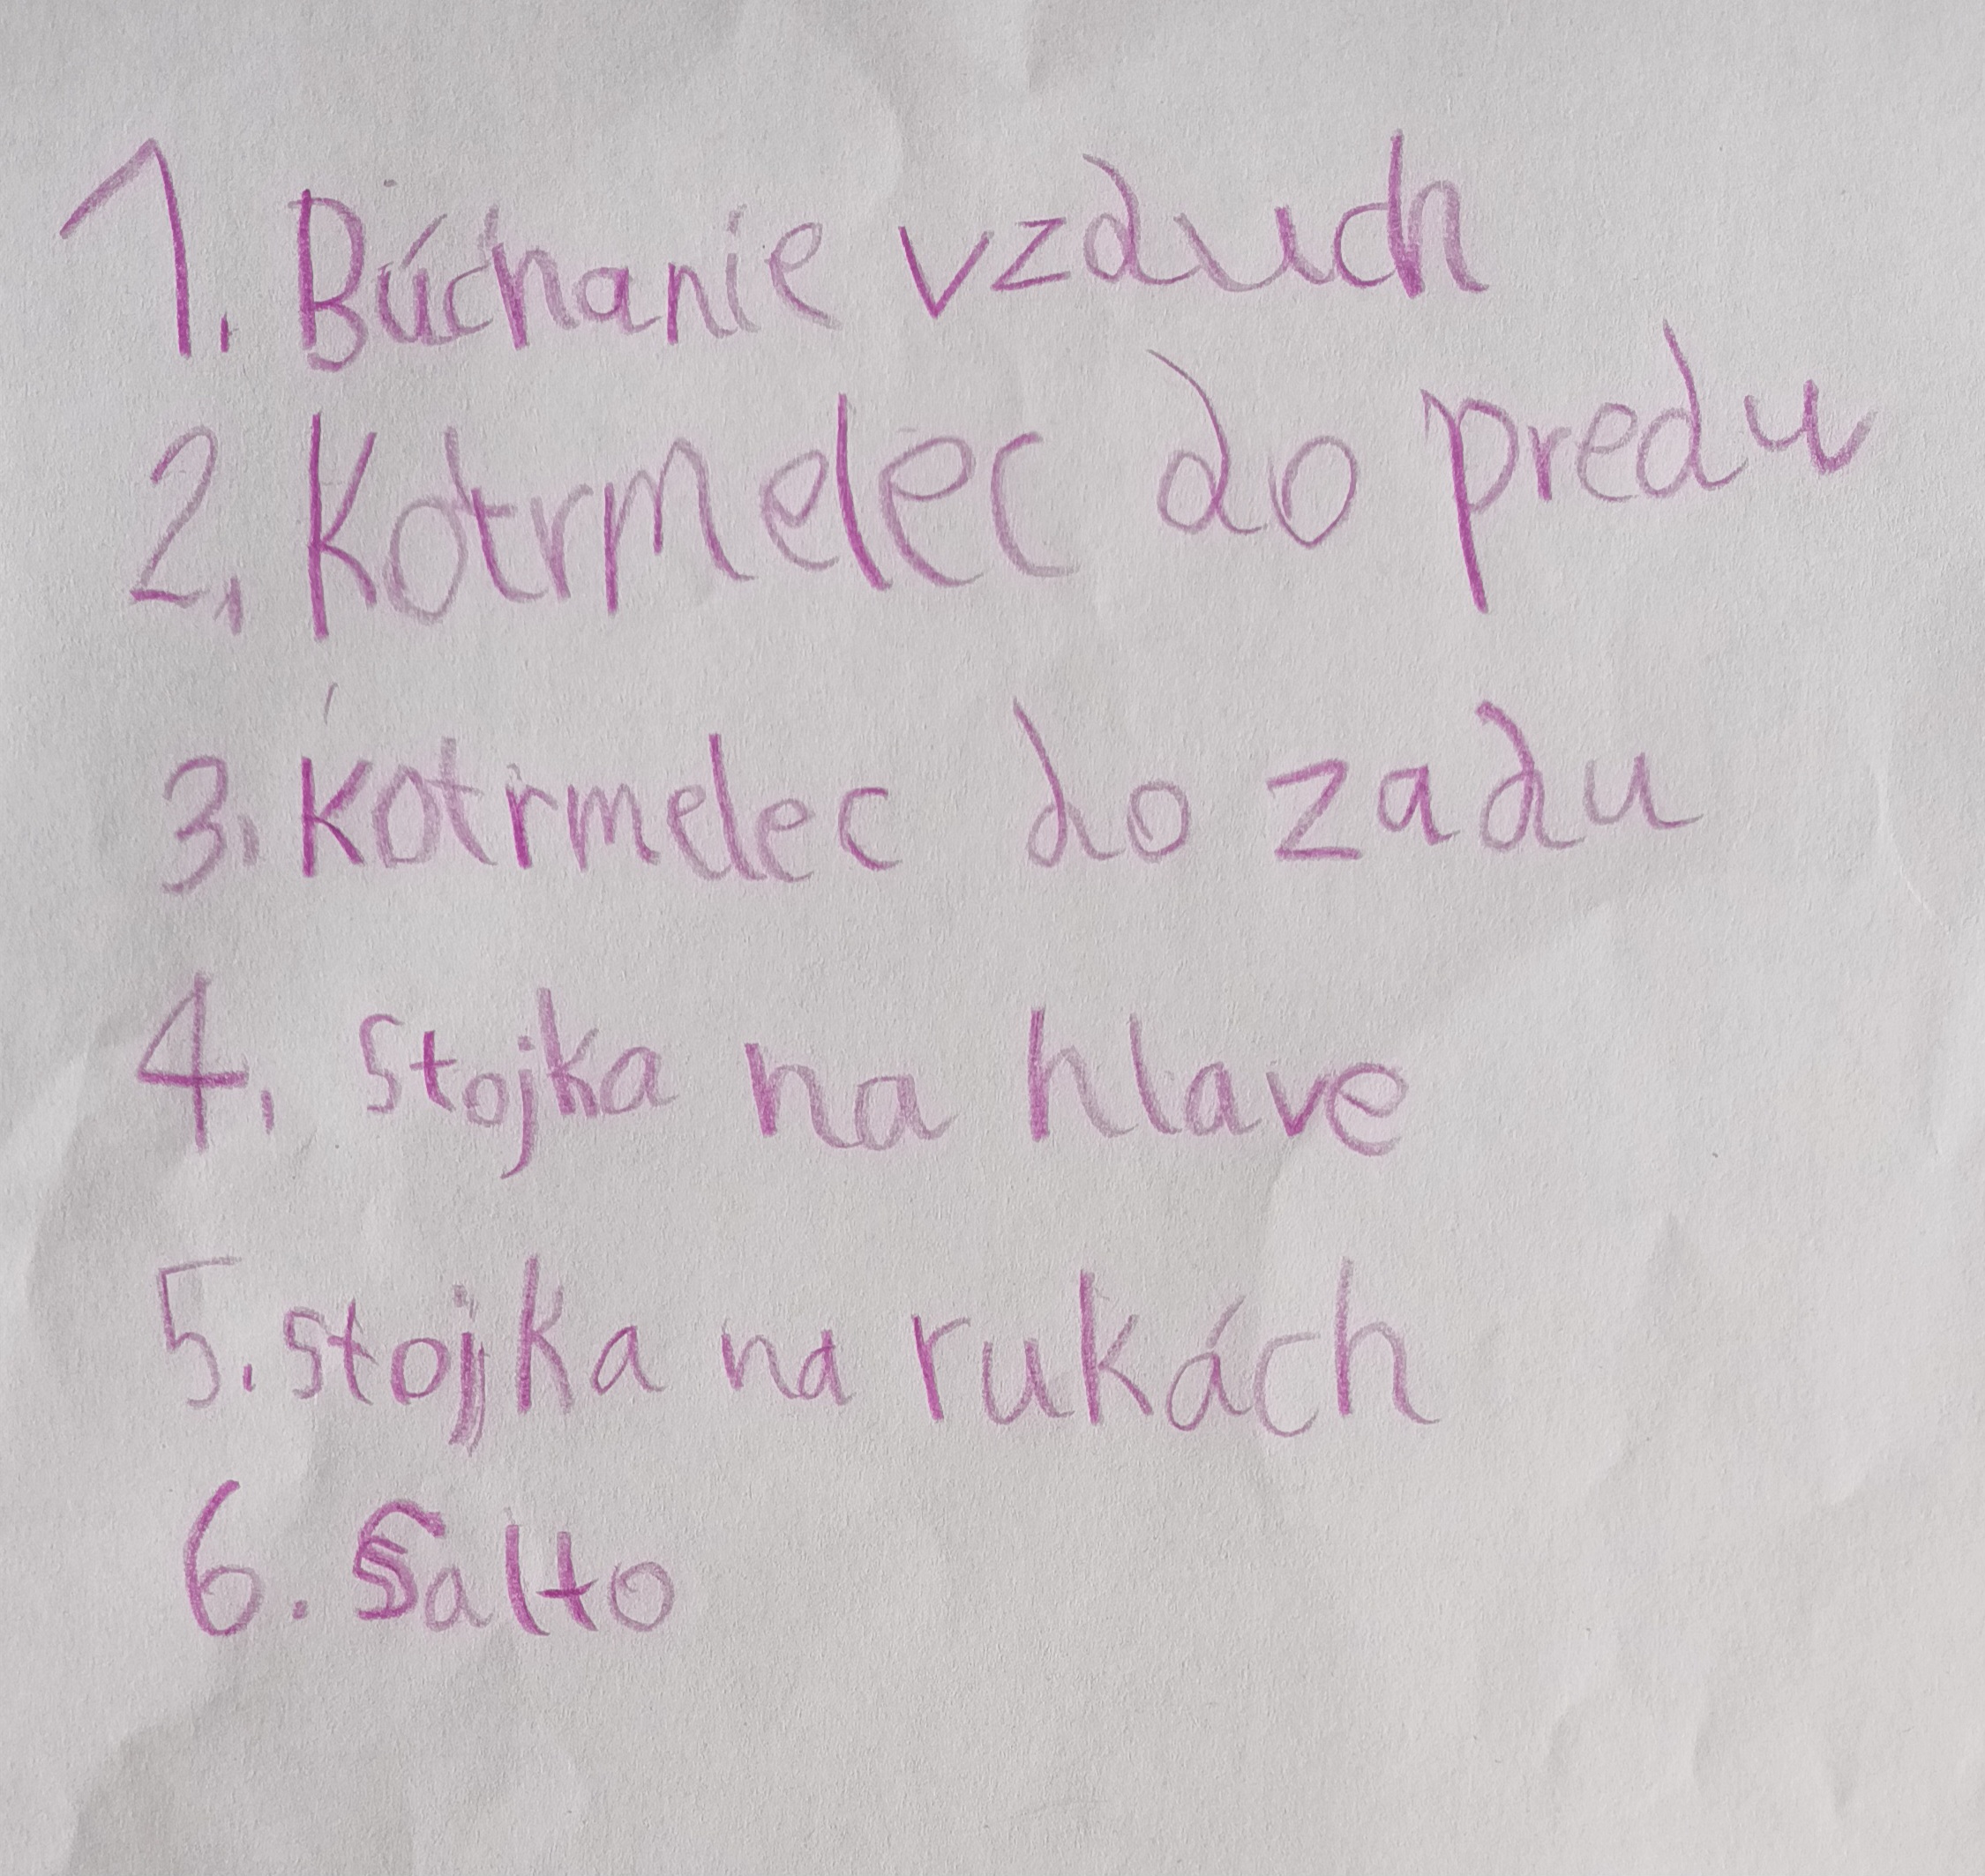 1. Búchanie vzduch
2. Kotrmelec do predu
3. Kotrmelec do zadu
4. Stojka na hlave
5. stojka na rukách
6. Salto